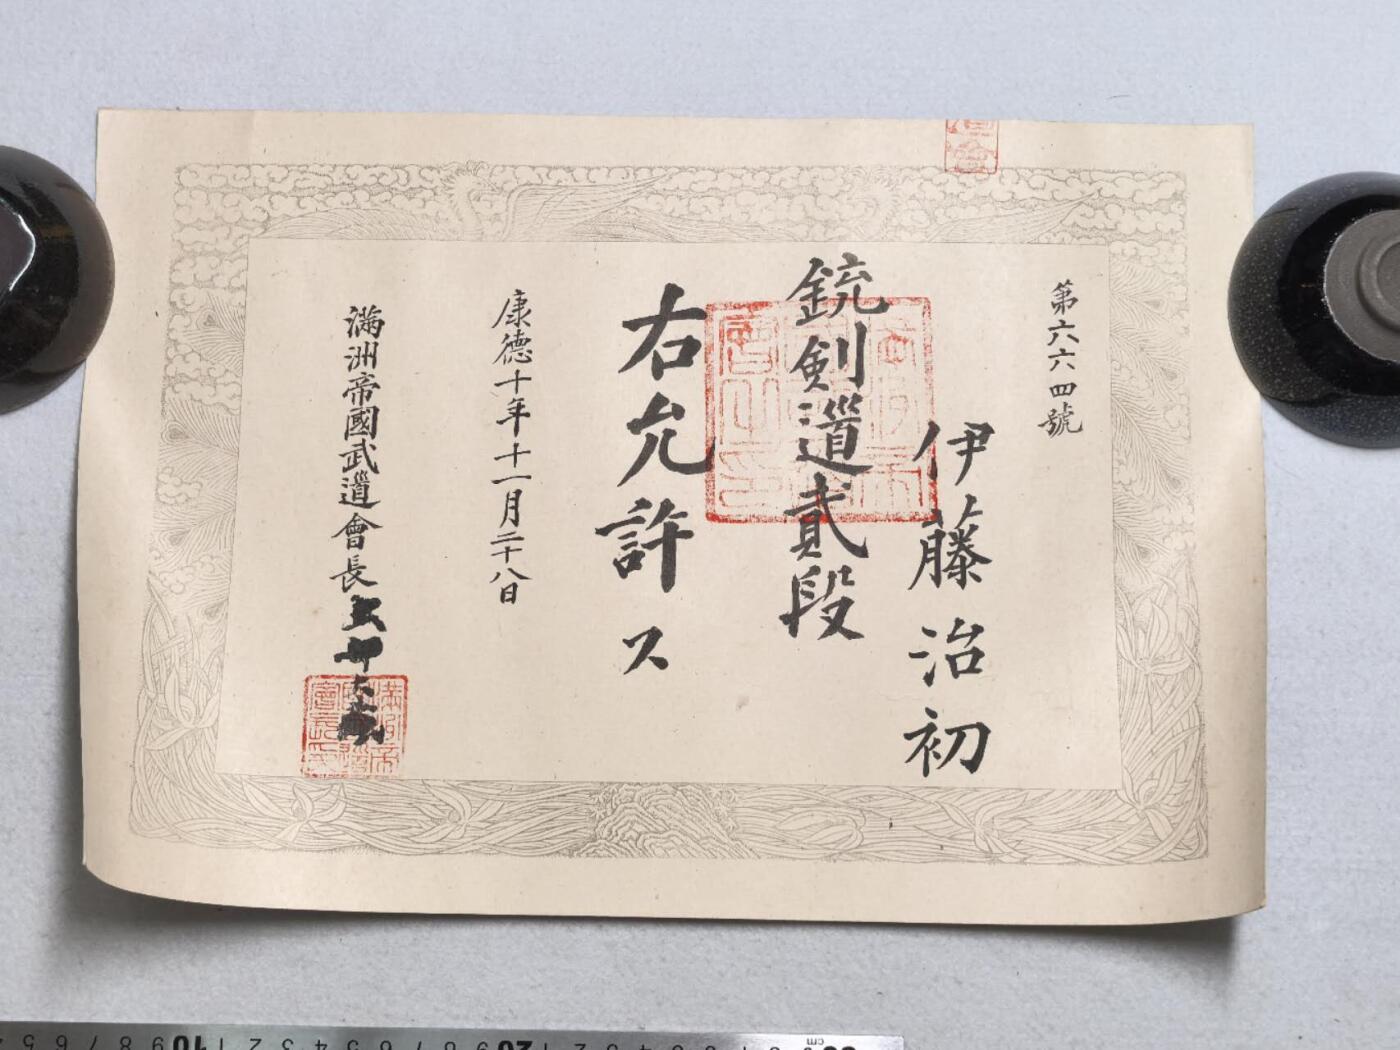 第六六四號
伊藤治初
銃剣道貳段
右允許ス
康德十年十一月二十八日
滿洲帝國武道會長